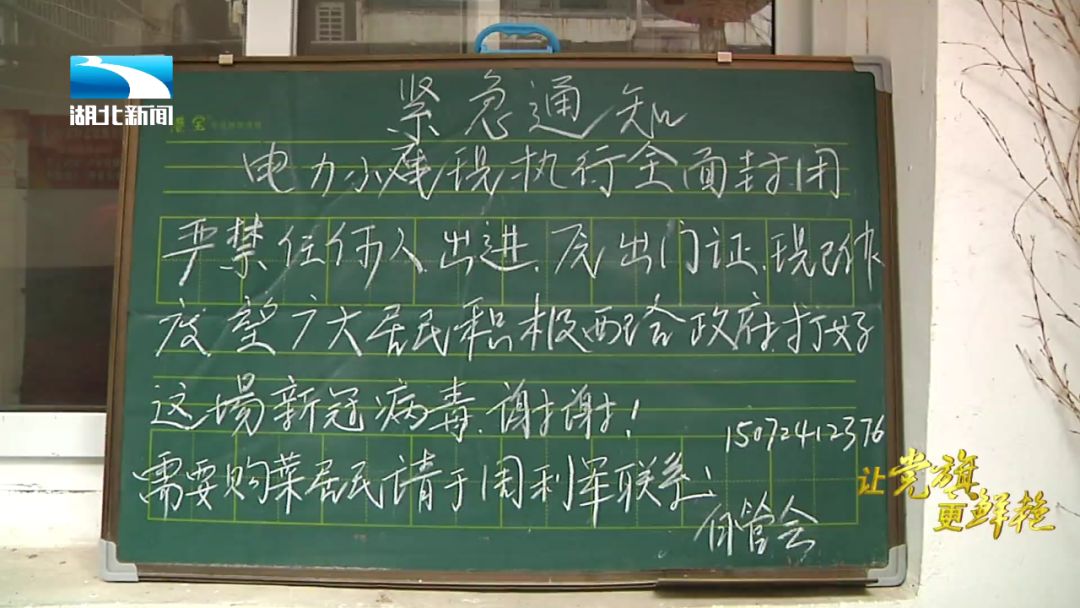 湖北新闻
紧急通知
电力小区现执行全面封闭
严禁任何人出进.原出门证.现已作
废.望广大居民积极配合政府.打好
这場新冠病毒.谢谢!
15072412376
需要购菜居民请于周利军联系:
自管会
让党旗
更鲜艳